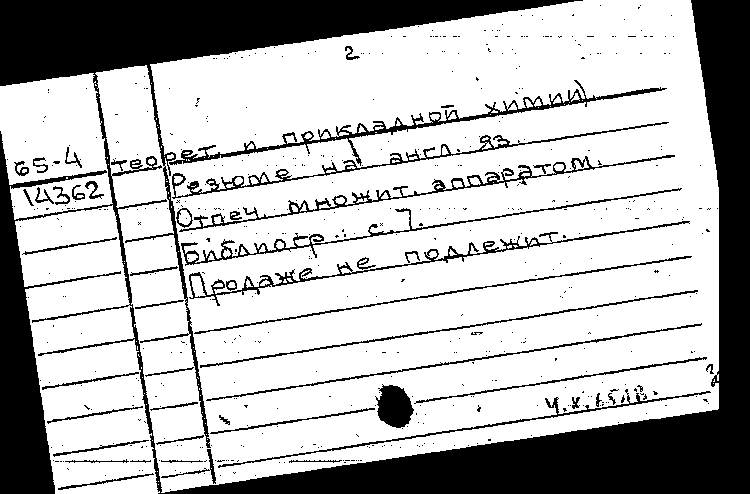 2
65-4 теорет. и прикладной химии).
14362 Резюме на англ. яз.
Отпеч. множит. аппаратом.
Библиогр.: с. 7.
Продаже не подлежит.